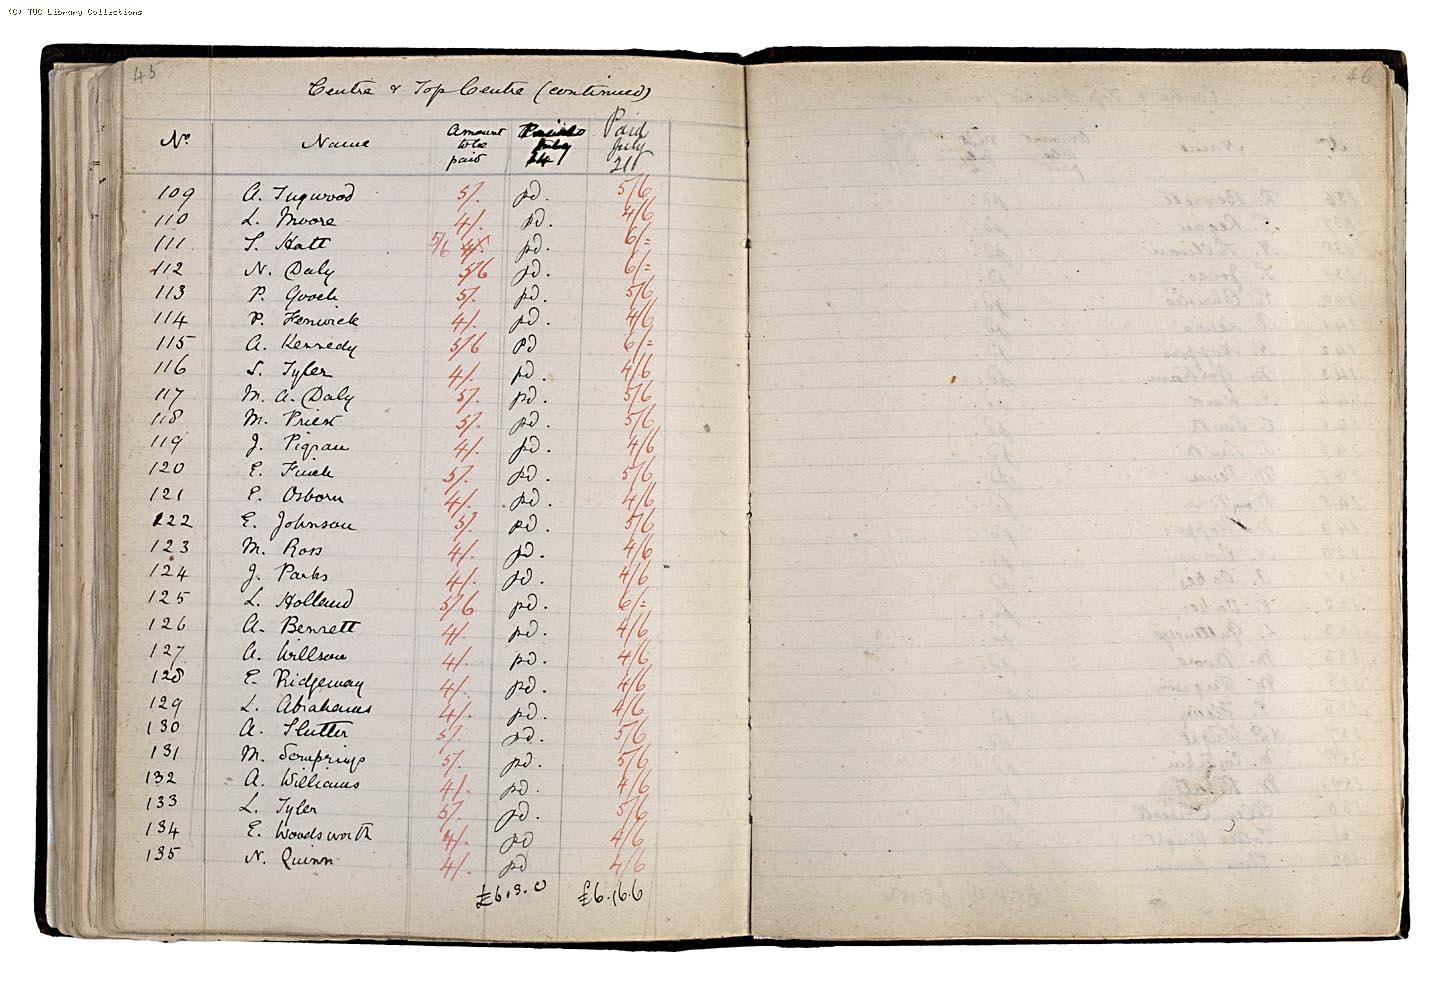 (C) TUC Library Collections
45
46
Centre & Top Centre (continued)
No. Name Amount to be paid July 14 Paid July 21st
109 A. Ingwood 5/. pd. 5/6
110 L. Moore 4/. pd. 4/6
111 S. Hatt 5/6 pd. 6/=
112 N. Daly 5/6 pd. 6/=
113 P. Gooch 5/. pd. 5/6
114 P. Fenwick 4/. pd. 4/6
115 A. Kennedy 5/6 pd 6/=
116 S. Tyler 4/. pd. 4/6
117 M. A. Daly 5/. pd. 5/6
118 M. Priest 5/. pd. 5/6
119 J. Pigrau 4/. pd. 4/6
120 E. Finch 5/. pd. 5/6
121 E. Osborn 4/. pd. 4/6
122 E. Johnson 5/. pd. 5/6
123 M. Ross 4/. pd. 4/6
124 J. Parks 4/. pd. 4/6
125 L. Holland 5/6 pd. 6/=
126 A. Bennett 4/. pd. 4/6
127 A. Willson 4/. pd. 4/6
128 E. Ridgeway 4/. pd. 4/6
129 L. Abrahams 4/. pd. 4/6
130 A. Flutter 5/. pd. 5/6
131 M. Somprings 5/. pd. 5/6
132 A. Williams 4/. pd. 4/6
133 L. Tyler 5/. pd. 5/6
134 E. Woodsworth 4/. pd 4/6
135 N. Quinn 4/. pd 4/6
£6.3.0 £6.16.6